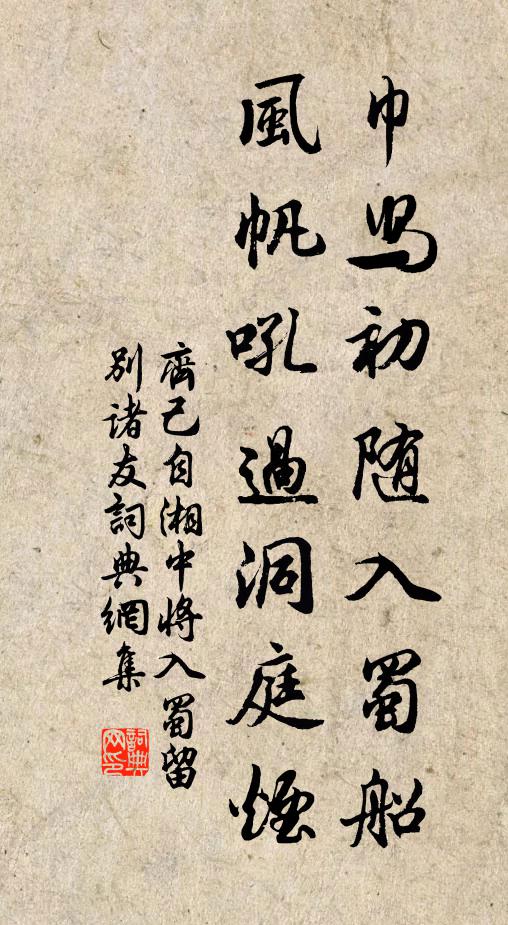 巾舄初随入蜀船
風帆吼過洞庭煙
齊己自湘中將入蜀留
别諸友詞典網集
詞典
网印